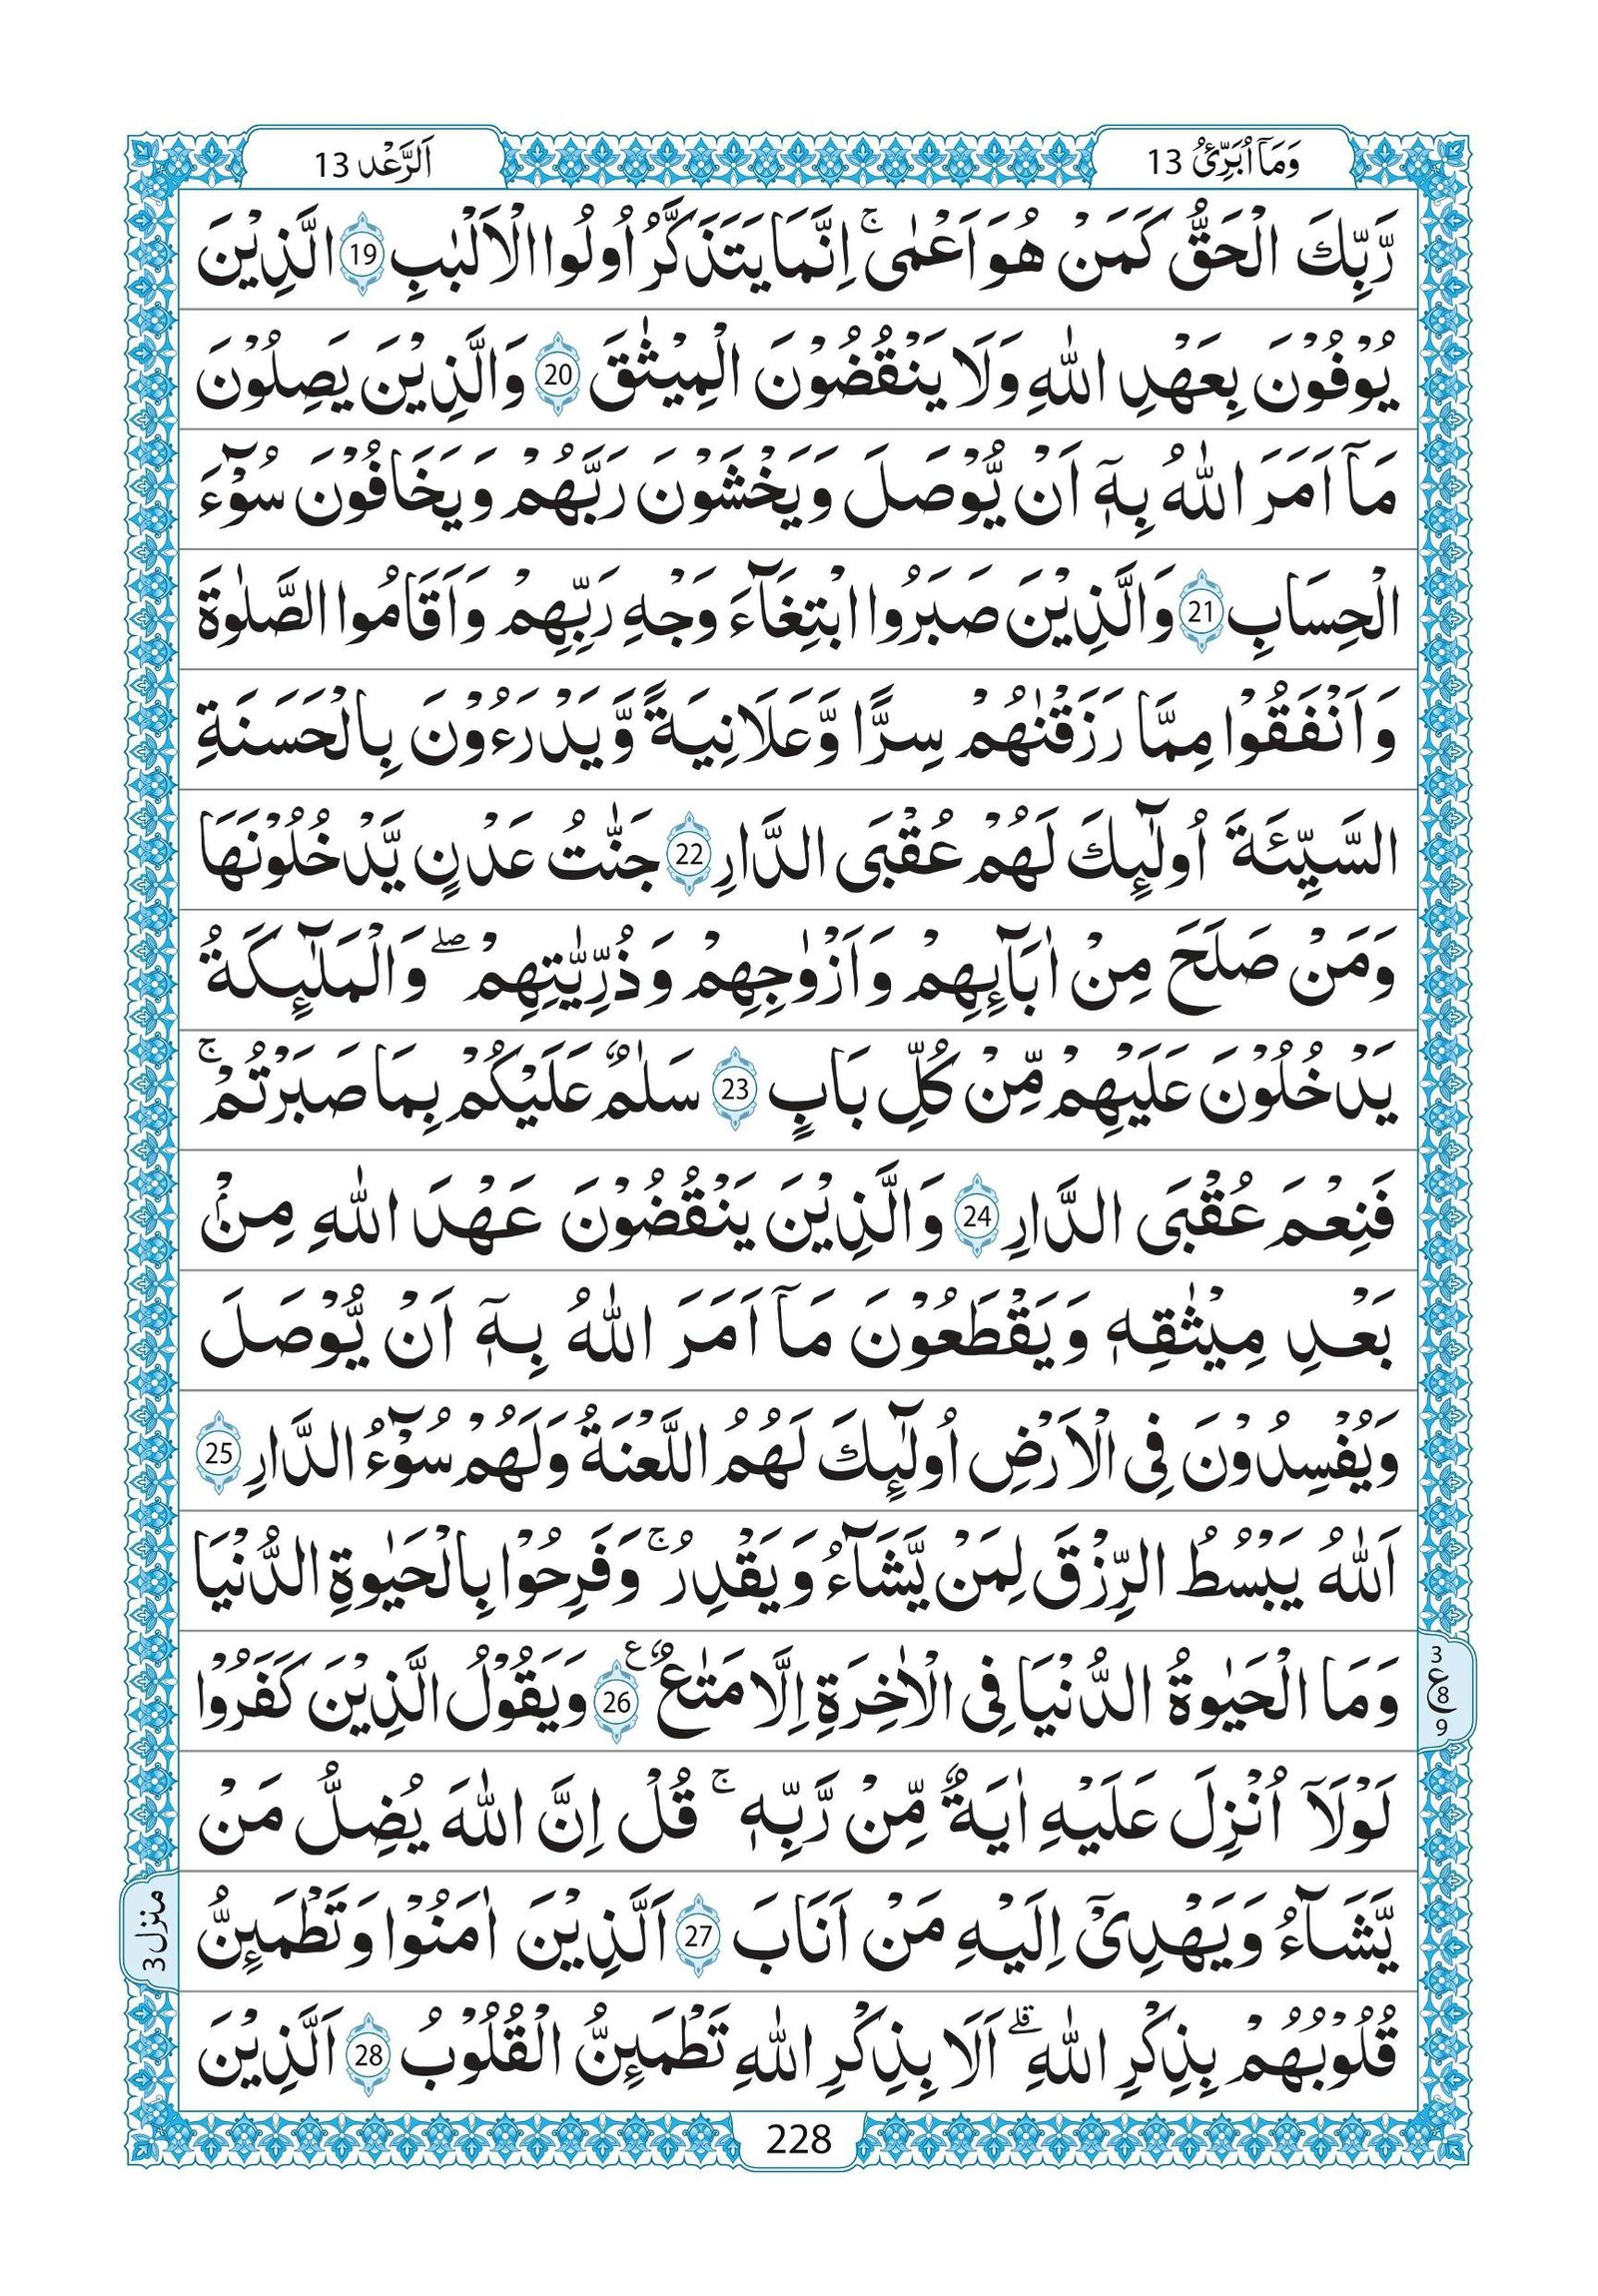 وَمَاۤ اُبَرِّئُ 13
اَلرَّعْد 13
رَّبِّكَ الْحَقُّ كَمَنْ هُوَ اَعْمٰى ۚ اِنَّمَا يَتَذَكَّرُ اُولُوا الْاَلْبٰبِ 19 الَّذِيْنَ
يُوْفُوْنَ بِعَهْدِ اللّٰهِ وَلَا يَنْقُضُوْنَ الْمِيْثٰقَ 20 وَالَّذِيْنَ يَصِلُوْنَ
مَاۤ اَمَرَ اللّٰهُ بِهٖۤ اَنْ يُّوْصَلَ وَيَخْشَوْنَ رَبَّهُمْ وَيَخَافُوْنَ سُوْٓءَ
الْحِسَابِ 21 وَالَّذِيْنَ صَبَرُوا ابْتِغَآءَ وَجْهِ رَبِّهِمْ وَاَقَامُوا الصَّلٰوةَ
وَاَنْفَقُوْا مِمَّا رَزَقْنٰهُمْ سِرًّا وَّعَلَانِيَةً وَّيَدْرَءُوْنَ بِالْحَسَنَةِ
السَّيِّئَةَ اُولٰٓئِكَ لَهُمْ عُقْبَى الدَّارِ 22 جَنّٰتُ عَدْنٍ يَّدْخُلُوْنَهَا
وَمَنْ صَلَحَ مِنْ اٰبَآئِهِمْ وَاَزْوٰجِهِمْ وَذُرِّيّٰتِهِمْ ۖ وَالْمَلٰٓئِكَةُ
يَدْخُلُوْنَ عَلَيْهِمْ مِّنْ كُلِّ بَابٍ 23 سَلٰمٌ عَلَيْكُمْ بِمَا صَبَرْتُمْ ۚ
فَنِعْمَ عُقْبَى الدَّارِ 24 وَالَّذِيْنَ يَنْقُضُوْنَ عَهْدَ اللّٰهِ مِنْۢ
بَعْدِ مِيْثٰقِهٖ وَيَقْطَعُوْنَ مَاۤ اَمَرَ اللّٰهُ بِهٖۤ اَنْ يُّوْصَلَ
وَيُفْسِدُوْنَ فِى الْاَرْضِ اُولٰٓئِكَ لَهُمُ اللَّعْنَةُ وَلَهُمْ سُوْٓءُ الدَّارِ 25
اَللّٰهُ يَبْسُطُ الرِّزْقَ لِمَنْ يَّشَآءُ وَيَقْدِرُ ۚ وَفَرِحُوْا بِالْحَيٰوةِ الدُّنْيَا
وَمَا الْحَيٰوةُ الدُّنْيَا فِى الْاٰخِرَةِ اِلَّا مَتٰعٌ ع 26 وَيَقُوْلُ الَّذِيْنَ كَفَرُوْا
3
ع
8
9
لَوْلَاۤ اُنْزِلَ عَلَيْهِ اٰيَةٌ مِّنْ رَّبِّهٖ ۚ قُلْ اِنَّ اللّٰهَ يُضِلُّ مَنْ
يَّشَآءُ وَيَهْدِىْۤ اِلَيْهِ مَنْ اَنَابَ 27 اَلَّذِيْنَ اٰمَنُوْا وَتَطْمَئِنُّ
منزل 3
قُلُوْبُهُمْ بِذِكْرِ اللّٰهِ ۗ اَلَا بِذِكْرِ اللّٰهِ تَطْمَئِنُّ الْقُلُوْبُ 28 اَلَّذِيْنَ
228